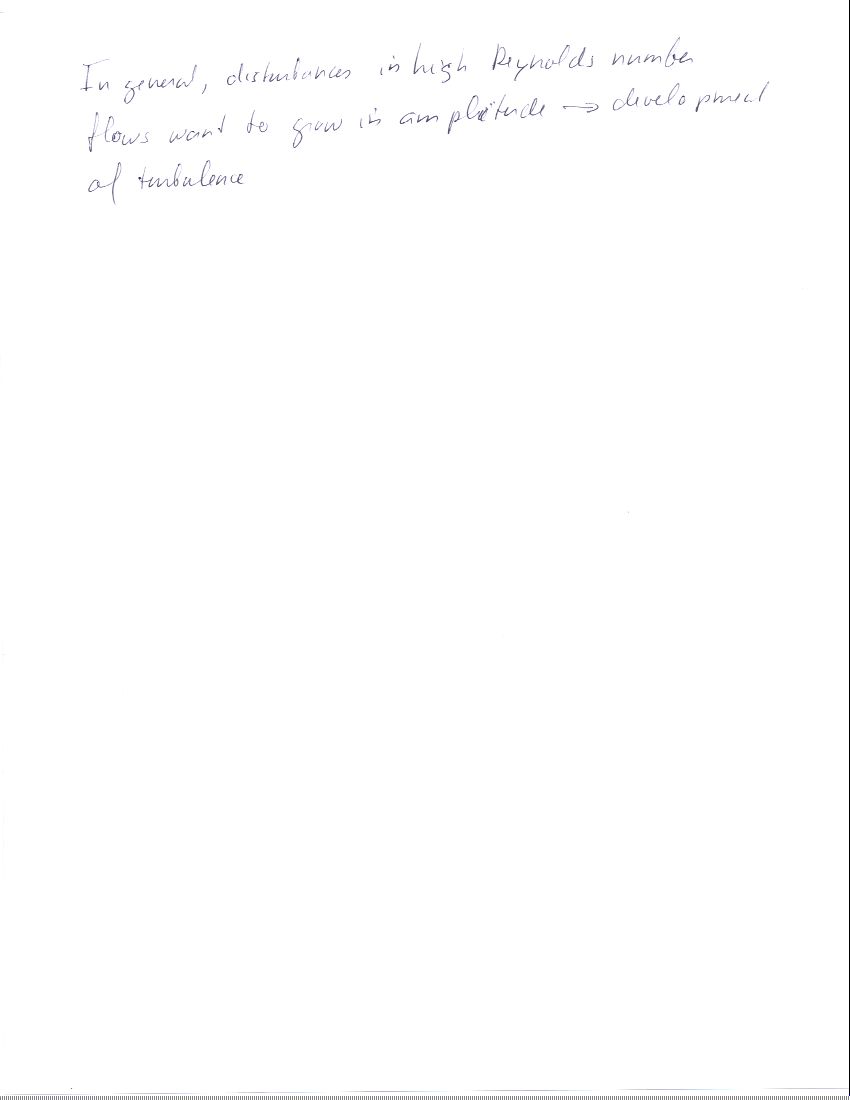 In general, disturbances in high Reynolds number
flows want to grow in amplitude → development
of turbulence